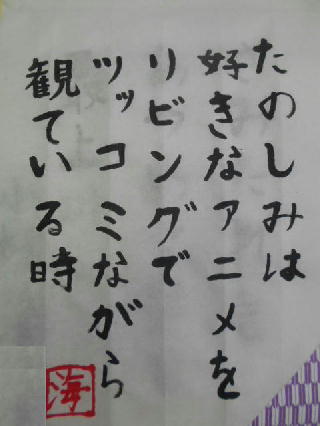 たのしみは
好きなアニメを
リビングで
ツッコミながら
観ている時
海